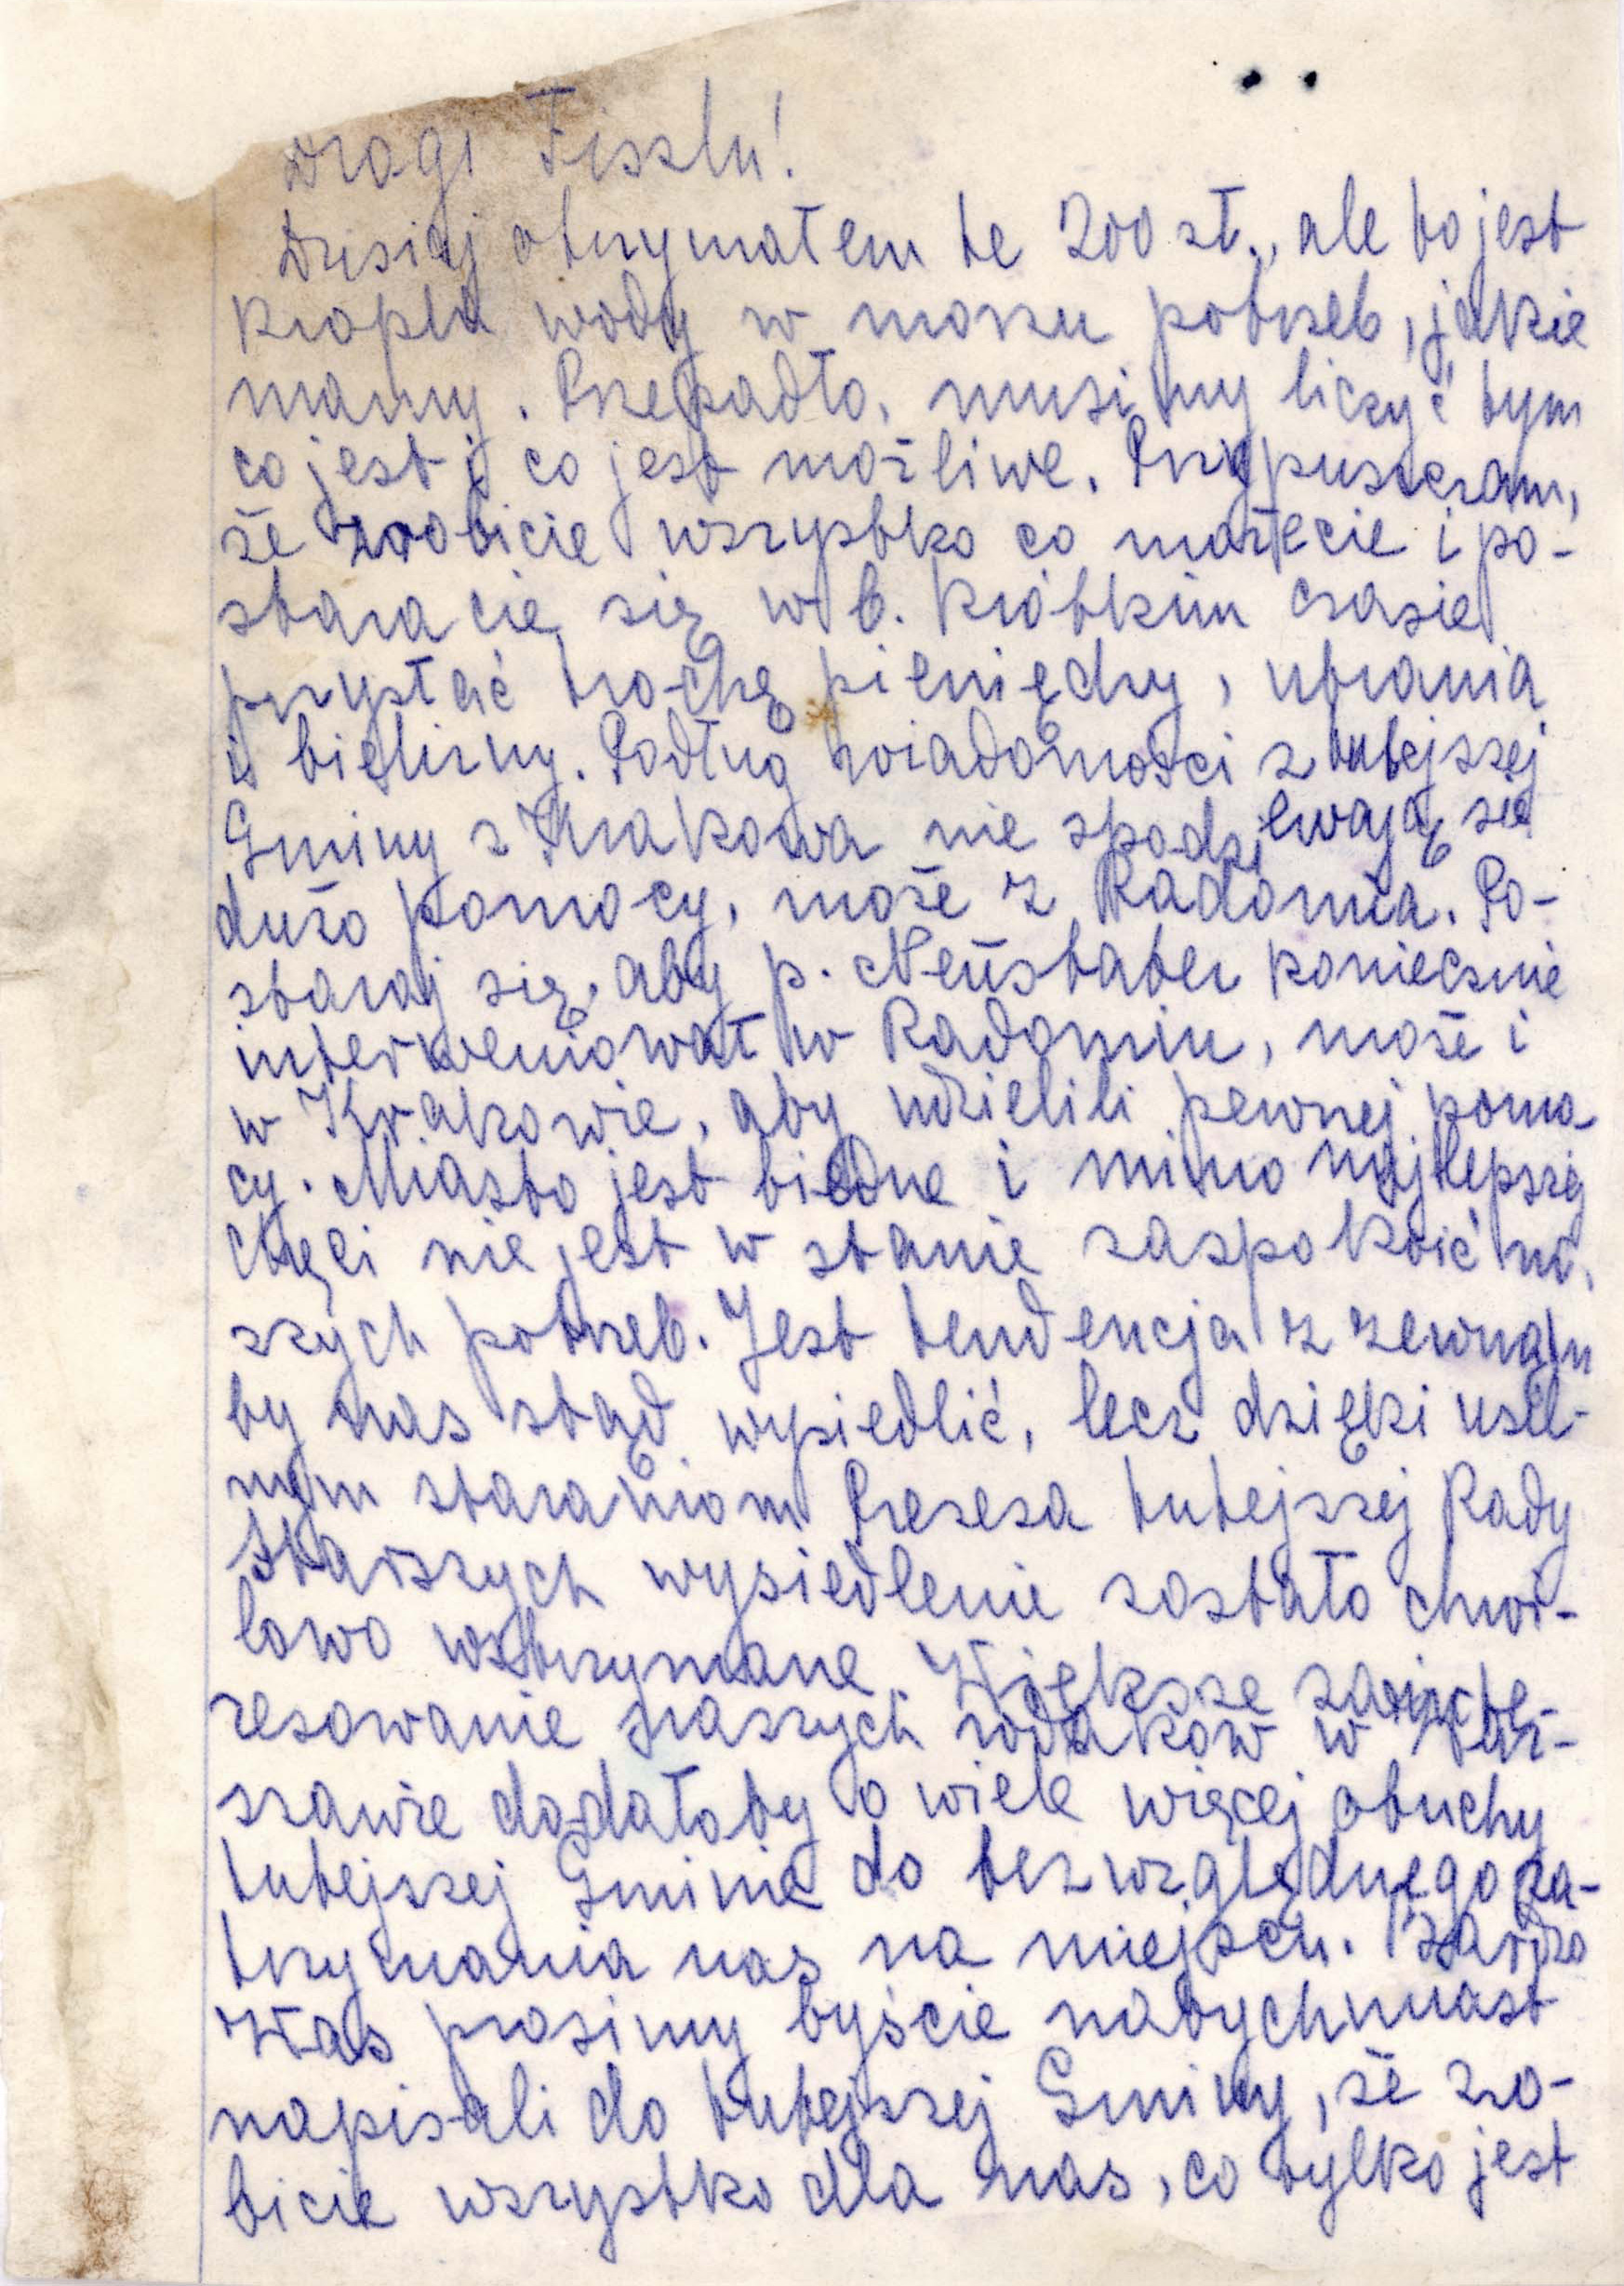 Drogi Fiszlu!
Dzisiaj otrzymałem te 200 zł., ale to jest
kropla wody w morzu potrzeb, jakie
mamy. Przepadło, musimy liczyć tym
co jest i co jest możliwe. Przypuszczam,
że zrobicie wszystko co możecie i po-
staracie się w b. krótkim czasie
przysłać trochę pieniędzy, ubrania
i bielizny. Podług wiadomości z tutejszej
Gminy z Krakowa nie spodziewają się
dużo pomocy, może z Radomia. Po-
staraj się, aby p. Neustater koniecznie
interweniował w Radomiu, może i
w Krakowie, aby udzielili pewnej pomo
cy. Miasto jest biedne i mimo najlepszej
chęci nie jest w stanie zaspokoić na-
szych potrzeb. Jest tendencja z zewnątrz
by nas stąd wysiedlić, lecz dzięki usil-
nym staraniom Prezesa tutejszej Rady
Starszych wysiedlenie zostało chwi-
lowo wstrzymane. Większe zainte-
resowanie naszych rodaków w War-
szawie dodałoby o wiele więcej otuchy
tutejszej Gminie do bezwzględnego za-
trzymania nas na miejscu. Bardzo
Was prosimy byście natychmiast
napisali do tutejszej Gminy, że zro-
bicie wszystko dla nas, co tylko jest